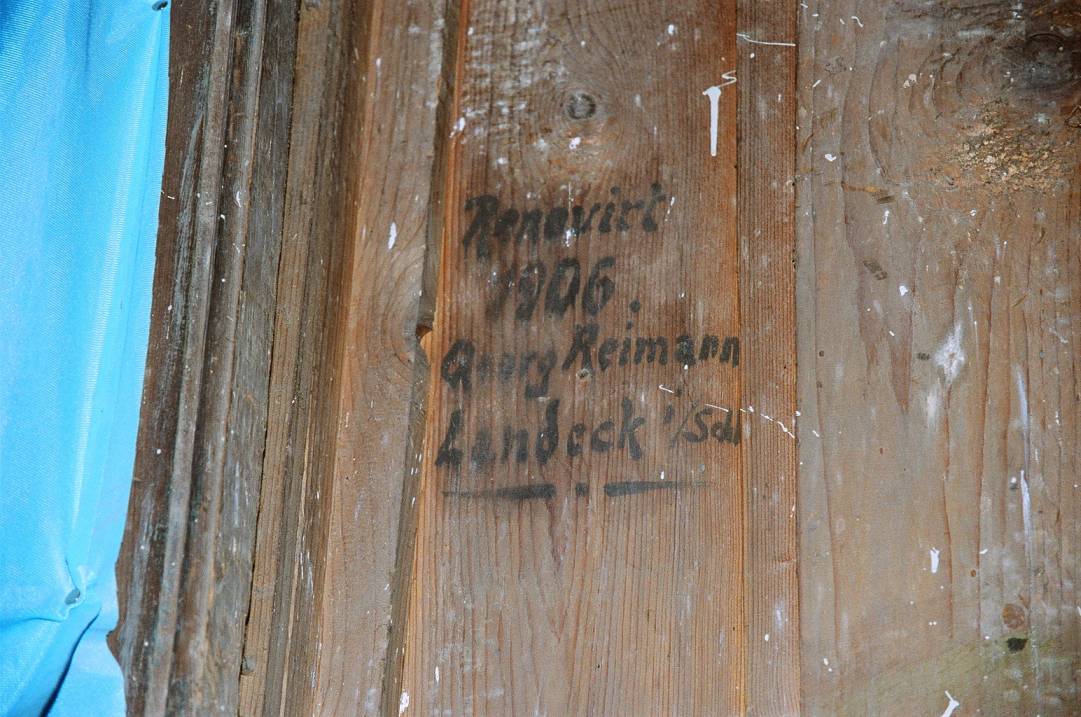 Renovirt
1906.
Georg Reimann
Landeck i/Schl